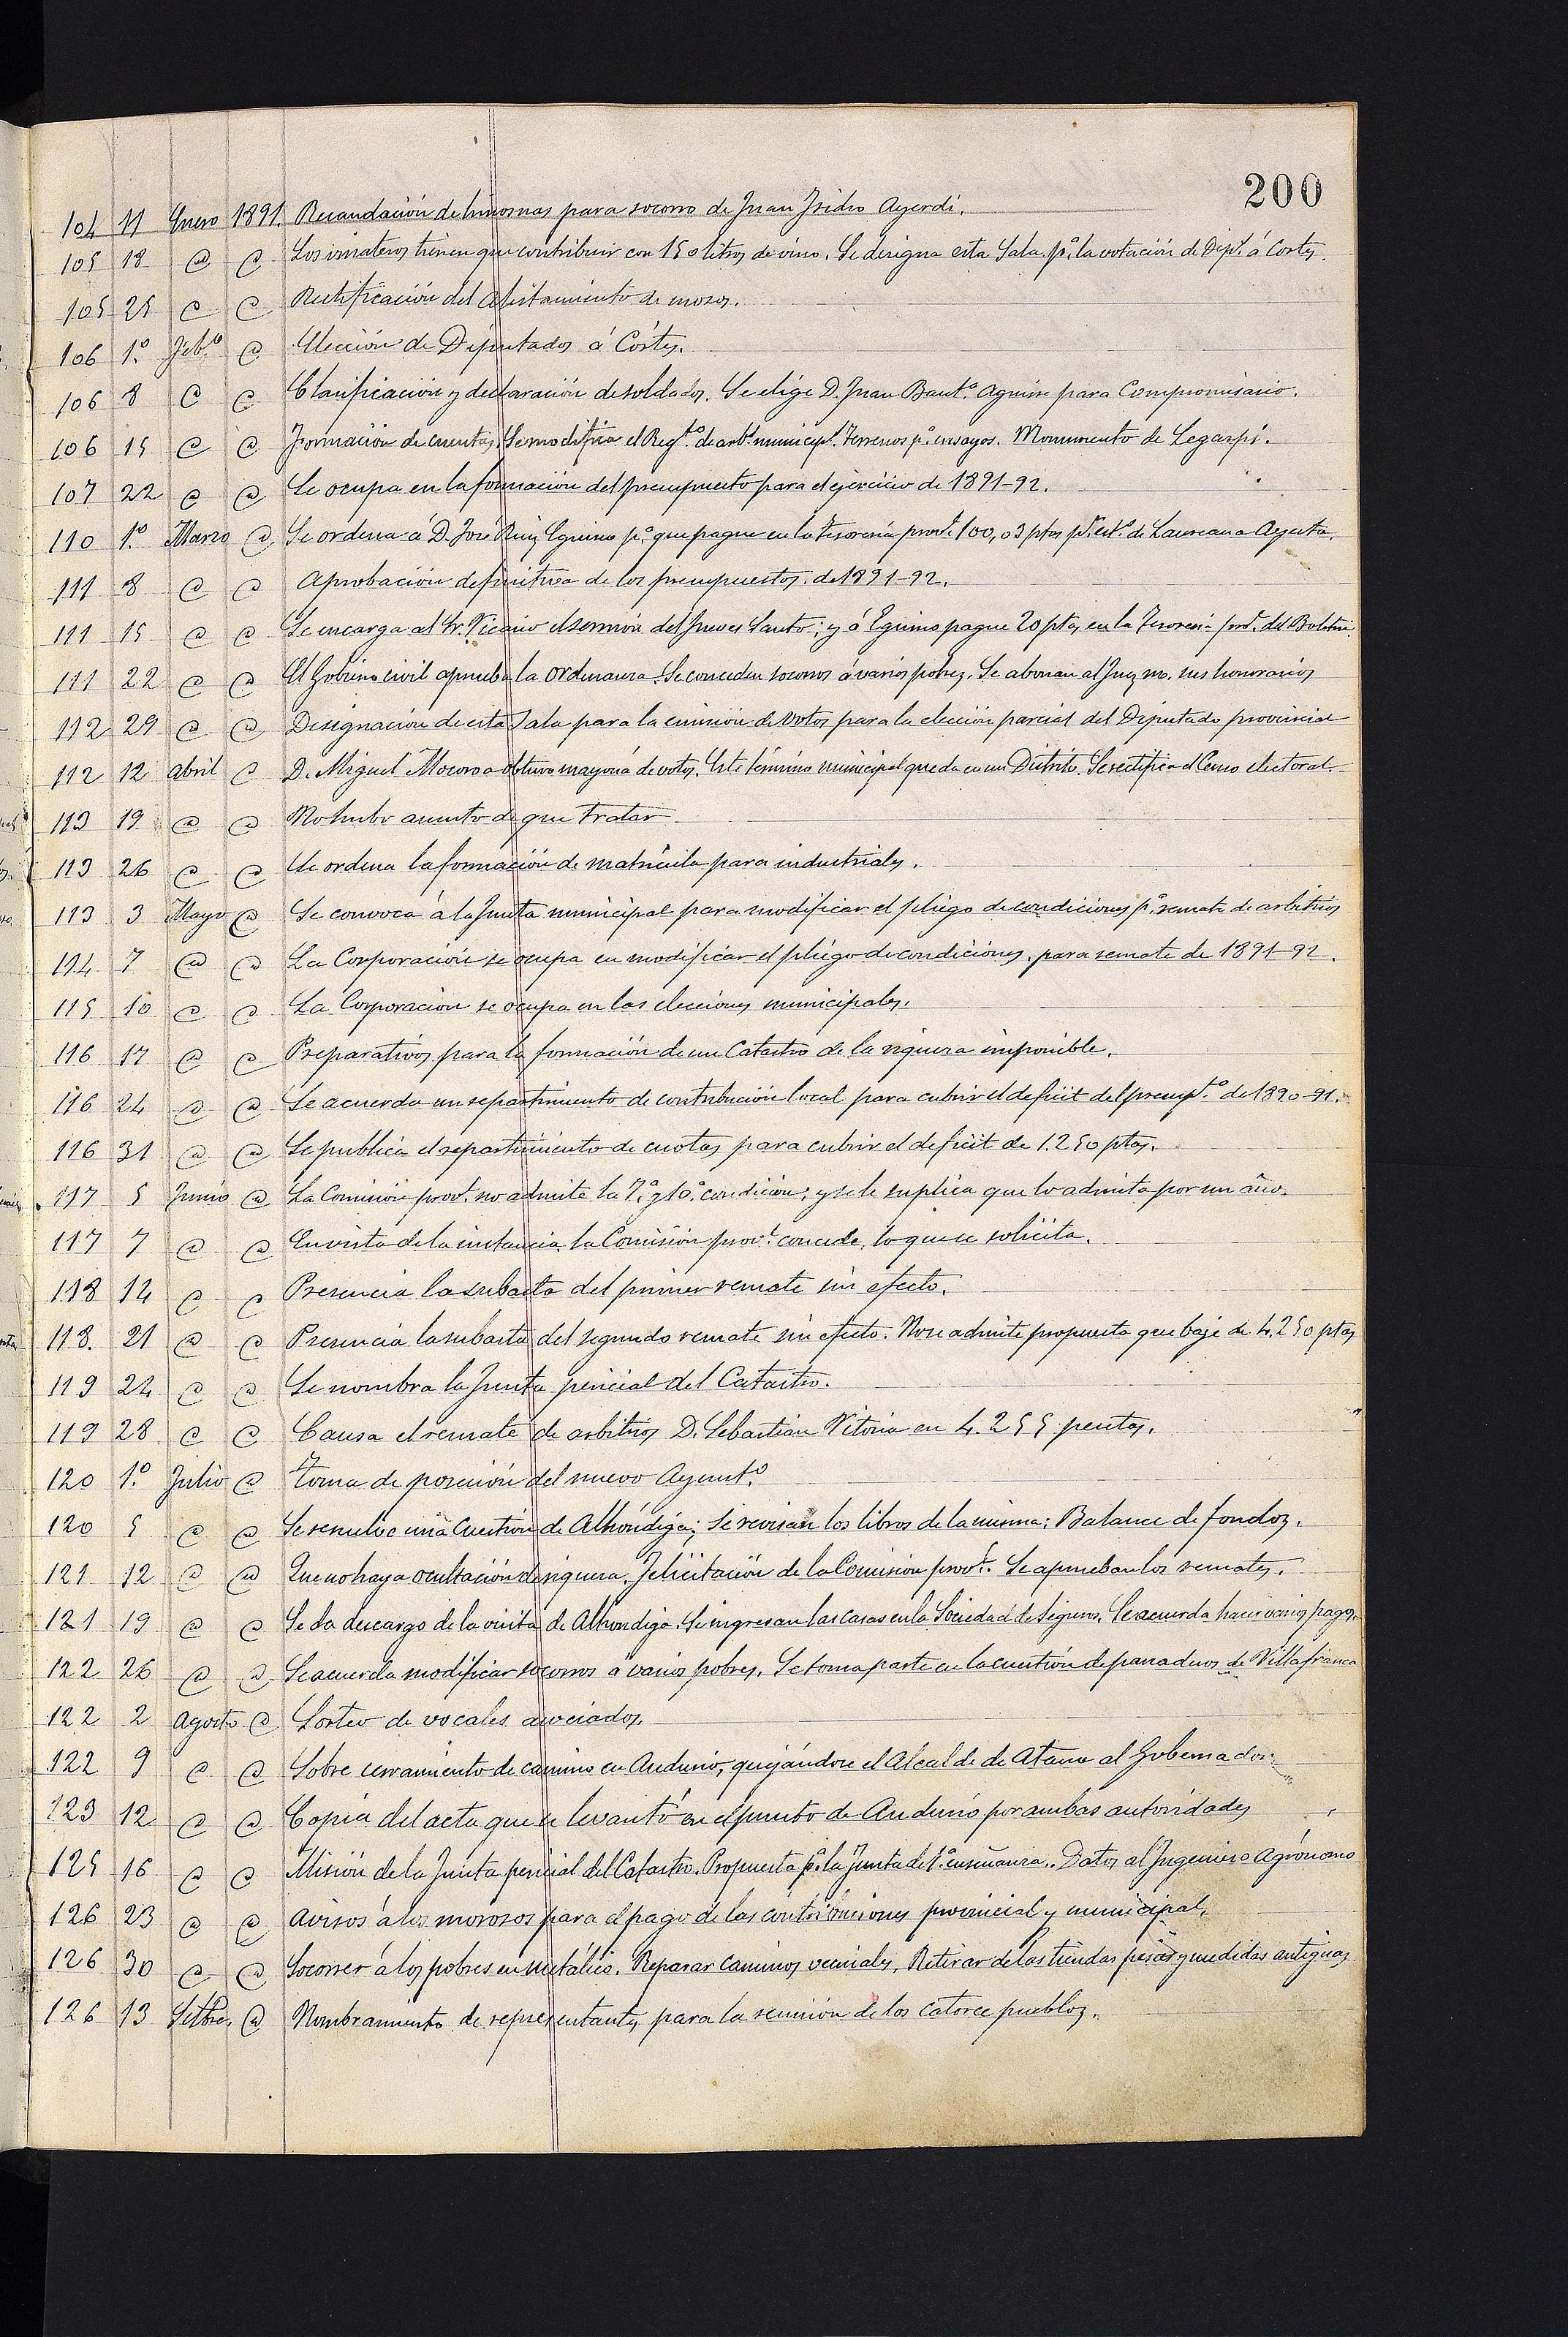 200
104 11 Enero 1891. Recaudación de limosnas para socorro de Juan Isidro Ayerdi.
105 18 @ @ Los vinateros tienen que contribuir con 150 litros de vino. Se designa esta Sala pª la votación de Dipt. á Cortes.
105 25 @ @ Rectificación del alistamiento de mozos.
106 1º Feb.º @ Elección de Diputados á Córtes.
106 8 @ @ Clasificación y declaración de soldados. Se elige D. Juan Baut.ª Aguirre para Compromisario.
106 15 @ @ Formación de cuentas. Se modifica el Reg.to de arb.s municip.l Terrenos pª ensayos. Monumento de Legazpi.
107 22 @ @ Se ocupa en la formación del presupuesto para el ejercicio de 1891-92.
110 1º Marzo @ Se ordena á D. José Ruiz Eguino pª que pague en la tesorería prov.l 100,03 ptas pr est.s de Laureana Ayesta.
111 8 @ @ Aprobación definitiva de los presupuestos de 1891-92.
111 15 @ @ Se encarga al Sr. Vicario el sermón del Jueves Santo; y á Eguino pague 20 ptas en la Tesorería prov.l del Boletin.
111 22 @ @ El Gobierno civil aprueba la ordenanza. Se conceden socorros á varios pobres. Se abonan al Juez mo. sus honorarios
112 29 @ @ Designación de esta Sala para la emisión de votos para la elección parcial del Diputado provincial
112 12 Abril @ D. Miguel Mocoroa obtuvo mayoría de votos. Este término municipal queda en un Distrito. Se rectifica el Censo electoral.
113 19 @ @ No hubo asunto de que tratar
113 26 @ @ Se ordena la formación de matrícula para industriales.
113 3 Mayo @ Se convoca á la Junta municipal para modificar el pliego de condiciones pª remate de arbitrios
114 7 @ @ La Corporación se ocupa en modificar el pliego de condiciones para remate de 1891-92.
115 10 @ @ La Corporación se ocupa en las elecciones municipales.
116 17 @ @ Preparativos para la formación de un Catastro de la riqueza imponible.
116 24 @ @ Se acuerda un repartimiento de contribución local para cubrir el deficit del presup.to de 1890-91.
116 31 @ @ Se publica el repartimiento de cuotas para cubrir el deficit de 1.250 ptas.
117 5 Junio @ La Comisión prov.l no admite la 7.ª y 10.ª condición; y se le suplica que lo admita por un año.
117 7 @ @ En vista de la instancia la Comisión prov.l concede lo que se solicita.
118 14 @ @ Presencia la subasta del primer remate sin efecto.
118. 21 @ @ Presencia la subasta del segundo remate sin efecto. No se admite propuesta que baje de 4.250 ptas
119 24 @ @ Se nombra la Junta pericial del Catastro.
119 28 @ @ Causa el remate de arbitrios D. Sebastian Vitoria en 4.255 pesetas.
120 1º Julio @ Toma de posesión del nuevo Ayunt.º
120 5 @ @ Se resuelve una Cuestión de Alhóndiga; Se revisan los libros de la misma: Balance de fondos.
121 12 @ @ Que no haya ocultación de riqueza. Felicitación de la Comisión prov.l. Se aprueban los remates.
121 19 @ @ Se da descargo de la visita de Alhondiga. Se ingresan las casas en la Sociedad de Seguros. Se acuerda hacer varios pagos.
122 26 @ @ Se acuerda modificar socorros á varios pobres. Se toma parte en la cuestión de panaderos de Villafranca
122 2 Agosto @ Sorteo de vocales asociados.
122 9 @ @ Sobre cerramiento de camino en Andurio, quejándose el Alcalde de Ataun al Gobernador.
123 12 @ @ Copia del acta que se levantó en el punto de Andurio por ambas autoridades
125 16 @ @ Misión de la Junta pericial del Catastro. Propuesta pª la Junta de 1ª enseñanza. Datos al Ingeniero Agrónomo
126 23 @ @ Avisos á los morosos para el pago de las contribuciones provincial y municipal.
126 30 @ @ Socorrer á los pobres en metálico. Reparar caminos vecinales. Retirar de las tiendas pesas y medidas antiguas
126 13 Setbre. @ Nombramiento de representantes para la reunión de los catorce pueblos.